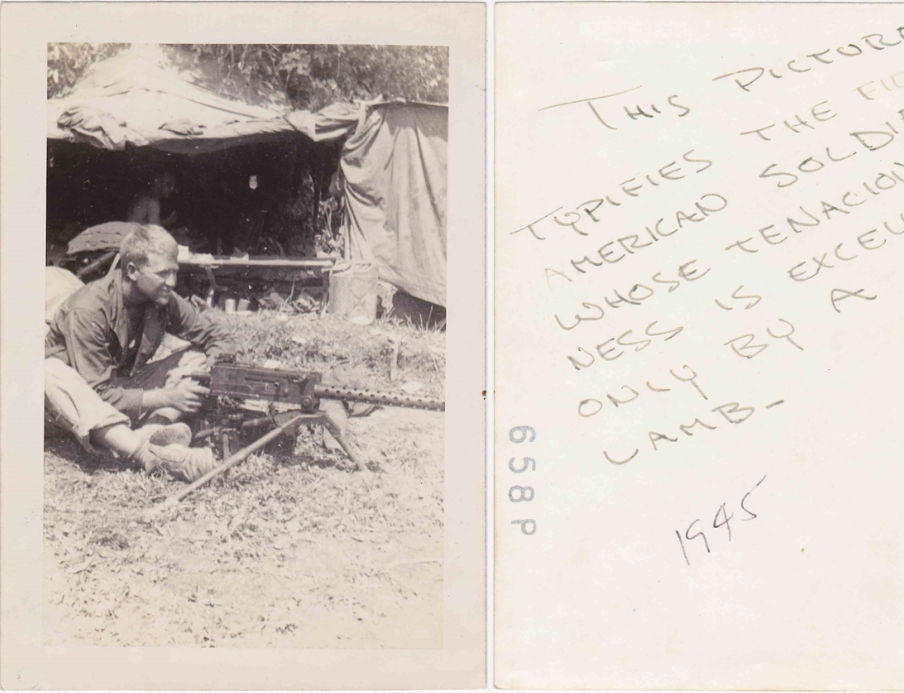 THIS PICTURE
TYPIFIES THE FIE
AMERICAN SOLDIE
WHOSE TENACIOU
NESS IS EXCEL
ONLY BY A
LAMB-
1945
658P